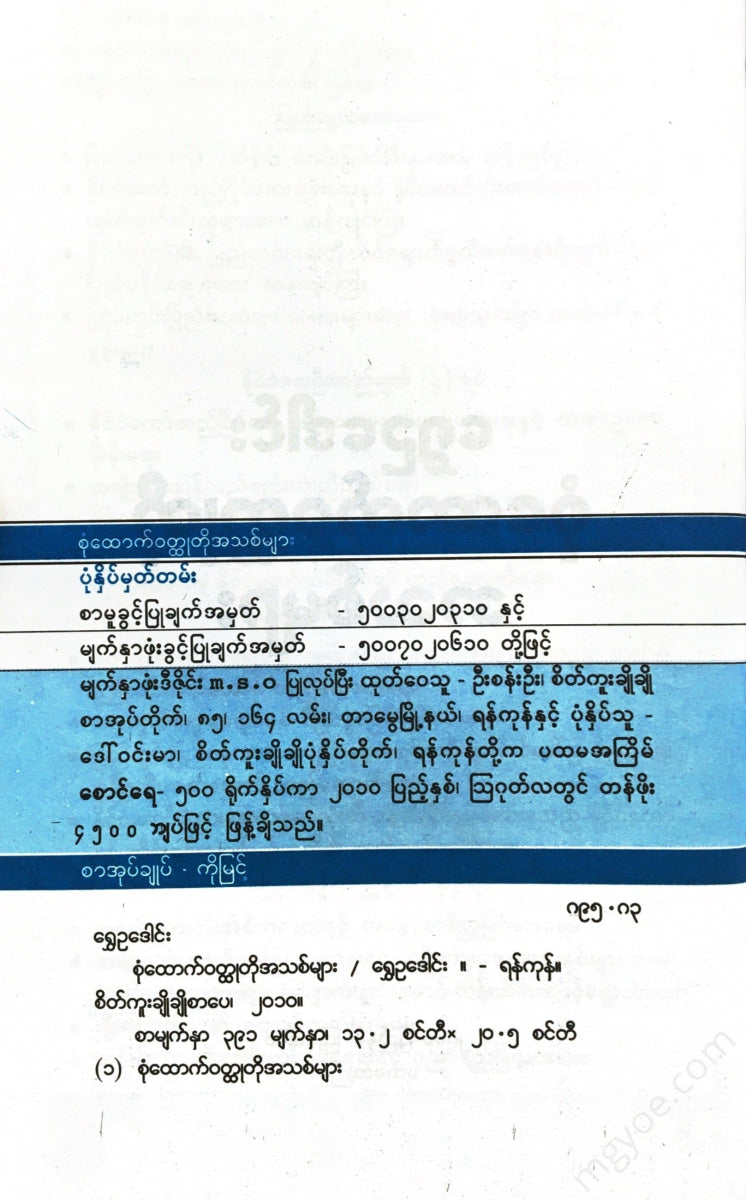 စုံထောက်ဝတ္ထုတိုအသစ်များ
ပုံနှိပ်မှတ်တမ်း
စာမူခွင့်ပြုချက်အမှတ် - ၅၀၀၃၀၂၀၃၁၀ နှင့်
မျက်နှာဖုံးခွင့်ပြုချက်အမှတ် - ၅၀၀၇၀၂၀၆၁၀ တို့ဖြင့်
မျက်နှာဖုံးဒီဇိုင်း m.s.o ပြုလုပ်ပြီး ထုတ်ဝေသူ - ဦးစန်းဦး၊ စိတ်ကူးချိုချို
စာအုပ်တိုက်၊ ၈၅၊ ၁၆၄ လမ်း၊ တာမွေမြို့နယ်၊ ရန်ကုန်နှင့် ပုံနှိပ်သူ -
ဒေါ်ဝင်းမာ၊ စိတ်ကူးချိုချိုပုံနှိပ်တိုက်၊ ရန်ကုန်တို့က ပထမအကြိမ်
စောင်ရေ- ၅၀၀ ရိုက်နှိပ်ကာ ၂၀၁၀ ပြည့်နှစ်၊ ဩဂုတ်လတွင် တန်ဖိုး
၄၅၀၀ ကျပ်ဖြင့် ဖြန့်ချိသည်။
စာအုပ်ချုပ် - ကိုမြင့်
၈၉၅.၈၃
ရွှေဥဒေါင်း
စုံထောက်ဝတ္ထုတိုအသစ်များ / ရွှေဥဒေါင်း ။ - ရန်ကုန်။
စိတ်ကူးချိုချိုစာပေ၊ ၂၀၁၀။
စာမျက်နှာ ၃၉၁ မျက်နှာ၊ ၁၃.၂ စင်တီ× ၂၀.၅ စင်တီ
(၁) စုံထောက်ဝတ္ထုတိုအသစ်များ
mgyoe.com